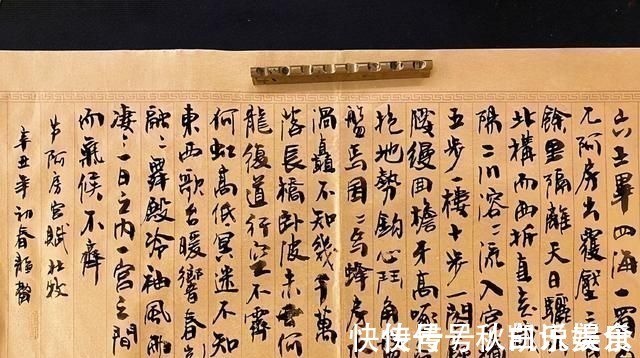 六王畢四海一蜀
兀阿房出覆壓三
餘里隔離天日驪
北構而西折直走
陽二川容々流入宮
五步一樓十步一閣
腰縵回檐牙高啄
抱地勢鈎心鬥角
盤焉囷々焉蜂房
渦矗不知幾千萬
落長橋臥波未雲何
龍復道行空不霽
何虹高低冥迷不知
東西歌台暖響春光
融々舞殿冷袖風雨
凄々一日之内一宮之間
而氣候不齊
阿房宮賦杜牧
辛丑年初春